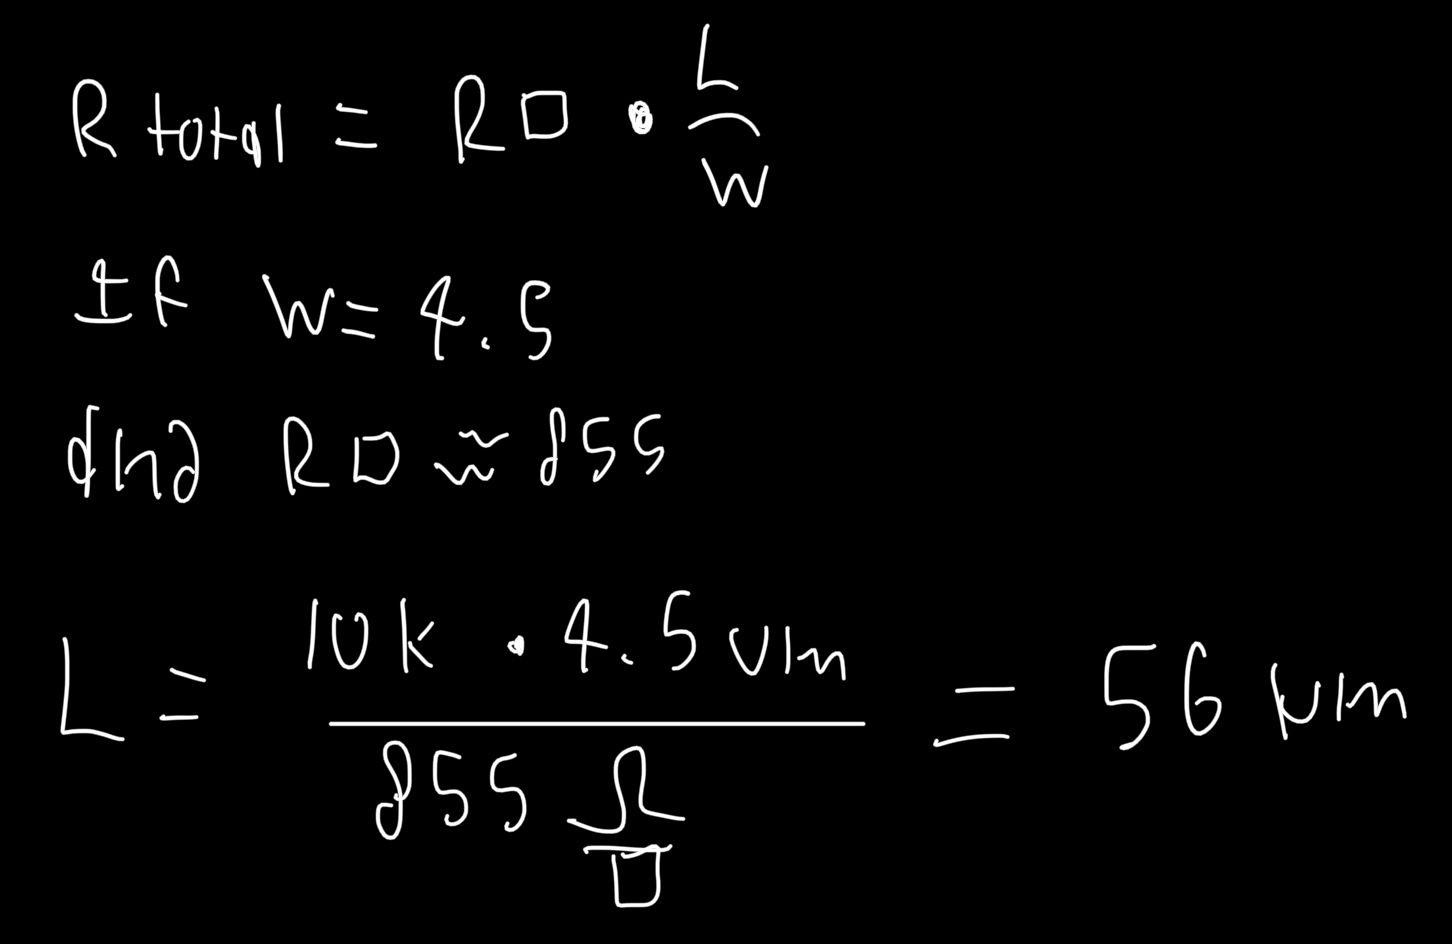 R total = R□ • L/W
If W = 4.5
and R□ ≈ 855
L = 10k • 4.5 um / 855 Ω/□ = 56 um